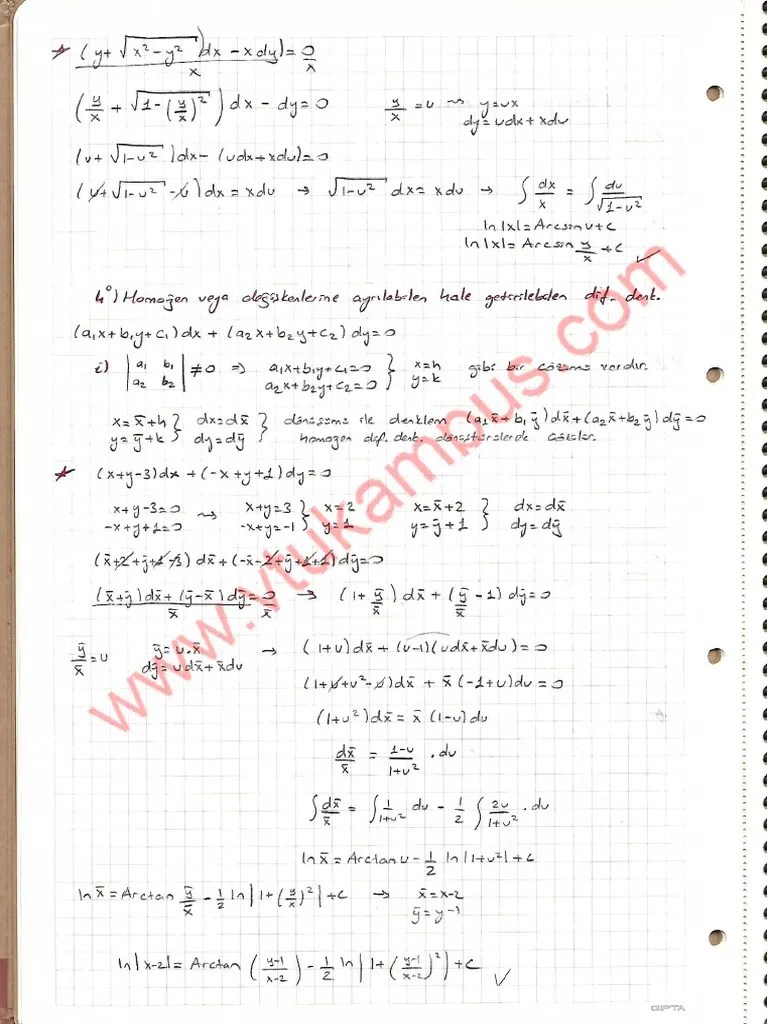 * (y+√(x²-y²))dx - xdy)/x = 0/x
(y/x + √(1-(y/x)²)) dx - dy = 0    y/x = u ⇝ y=ux
dy=udx+xdu
(u+√(1-u²))dx - (udx+xdu)=0
(u+√(1-u²) -u)dx = xdu → √(1-u²) dx = xdu → ∫ dx/x = ∫ du/√(1-u²)
ln|x| = Arcsinu+c
ln|x| = Arcsin y/x + c ✓
4°) Homojen veya değişkenlerine ayrılabilen hale getirilebilen dif. denk.
(a₁x+b₁y+c₁)dx + (a₂x+b₂y+c₂)dy=0
i) |a₁ b₁ a₂ b₂| ≠0 ⇒ a₁x+b₁y+c₁=0 a₂x+b₂y+c₂=0 } x=h y=k gibi bir çözümü vardır.
x=x̄+h y=ȳ+k } dx=dx̄ dy=dȳ } dönüşümü ile denklem (a₁x̄+b₁ȳ)dx̄+(a₂x̄+b₂ȳ)dȳ=0
homojen dif. denk. dönüştürülerek çözülür.
* (x+y-3)dx + (-x+y+1)dy=0
x+y-3=0 -x+y+1=0 ⇝ x+y=3 -x+y=-1 } x=2 y=1    x=x̄+2 y=ȳ+1 } dx=dx̄ dy=dȳ
(x̄+2+ȳ+1-3)dx̄+(-x̄-2+ȳ+1+1)dȳ=0
((x̄+ȳ)dx̄+(ȳ-x̄)dȳ)/x̄ = 0/x̄ → (1+ȳ/x̄)dx̄ + (ȳ/x̄ -1)dȳ=0
ȳ/x̄=u    ȳ=u.x̄ dȳ=udx̄+x̄du → (1+u)dx̄+(u-1)(udx̄+x̄du)=0
(1+u+u²-u)dx̄ + x̄(-1+u)du=0
(1+u²)dx̄ = x̄(1-u)du
dx̄/x̄ = (1-u)/(1+u²) . du
∫ dx̄/x̄ = ∫ 1/(1+u²) du - 1/2 ∫ 2u/(1+u²) . du
ln x̄ = Arctanu - 1/2 ln|1+u²|+c
ln x̄ = Arctan ȳ/x̄ - 1/2 ln|1+(y/x)²|+c → x̄=x-2
ȳ=y-1
ln|x-2| = Arctan((y-1)/(x-2)) - 1/2 ln|1+((y-1)/(x-2))²|+c ✓
www.vtukampus.com
GIPTA